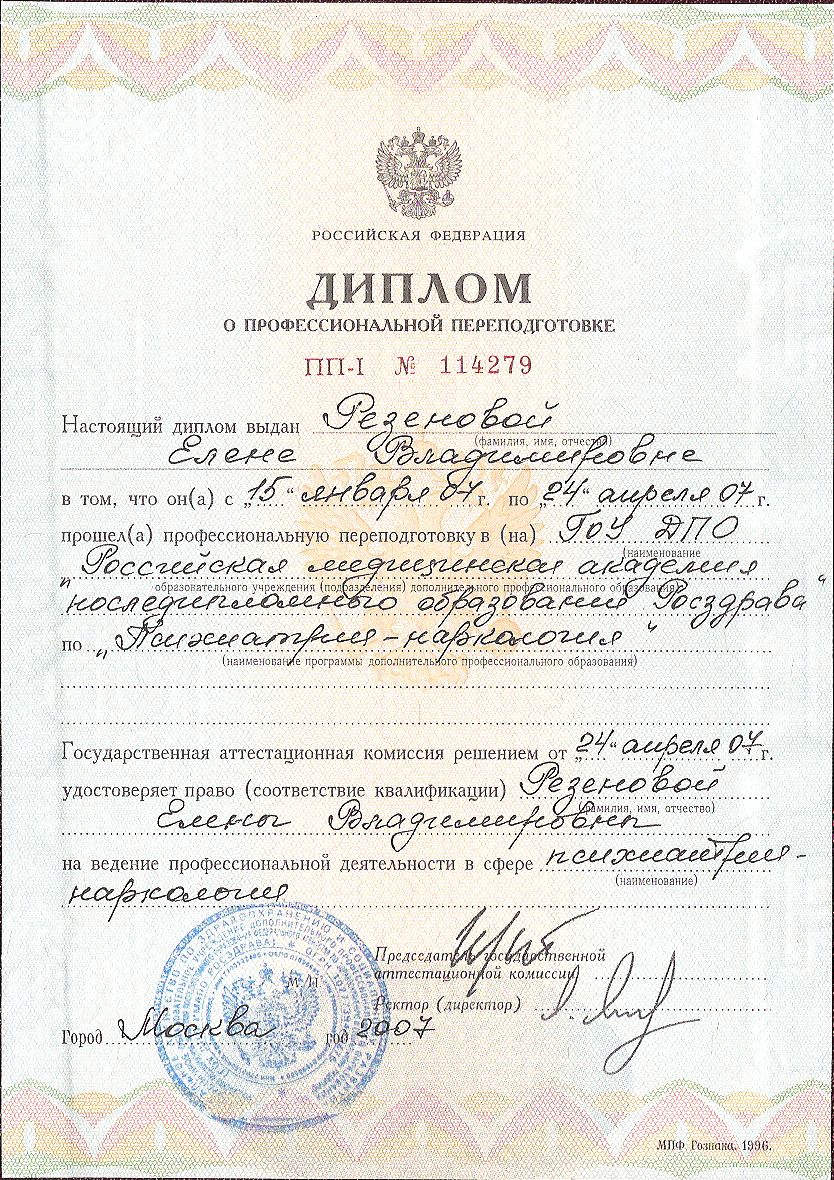 РОССИЙСКАЯ ФЕДЕРАЦИЯ
ДИПЛОМ
О ПРОФЕССИОНАЛЬНОЙ ПЕРЕПОДГОТОВКЕ
ПП-I № 114279
Настоящий диплом выдан Резеновой
(фамилия, имя, отчество)
Елене Владимировне
в том, что он(а) с „15“ января 07 г. по „24“ апреля 07 г.
прошел(а) профессиональную переподготовку в (на) ГоУ ДПО
(наименование
„Российская медицинская академия
образовательного учреждения (подразделения) дополнительного профессионального образования)
последипломного образования Росздрава“
по „Психиатрия-наркология“
(наименование программы дополнительного профессионального образования)
Государственная аттестационная комиссия решением от „24“ апреля 07 г.
удостоверяет право (соответствие квалификации) Резеновой
(фамилия, имя, отчество)
Елены Владимировны
на ведение профессиональной деятельности в сфере психиатрия-
(наименование)
наркология
Председатель государственной
аттестационной комиссии
М.П.
Ректор (директор)
Город Москва год 2007
МПФ Гознака. 1996.